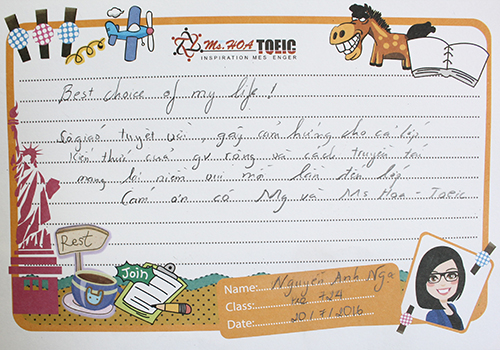 Ms. HOA TOEIC
INSPIRATION MESSENGER
Best choice of my life !
Cô giáo tuyệt vời, gây cảm hứng cho cả lớp
Kiến thức của gv rộng và cách truyền tải
mang lại niềm vui mỗi lần đến lớp
Cảm ơn cô Mg và Ms Hoa - Toeic
Rest
Join
Name: Nguyễn Anh Nga
Class: 724
Date: 20/7/2016